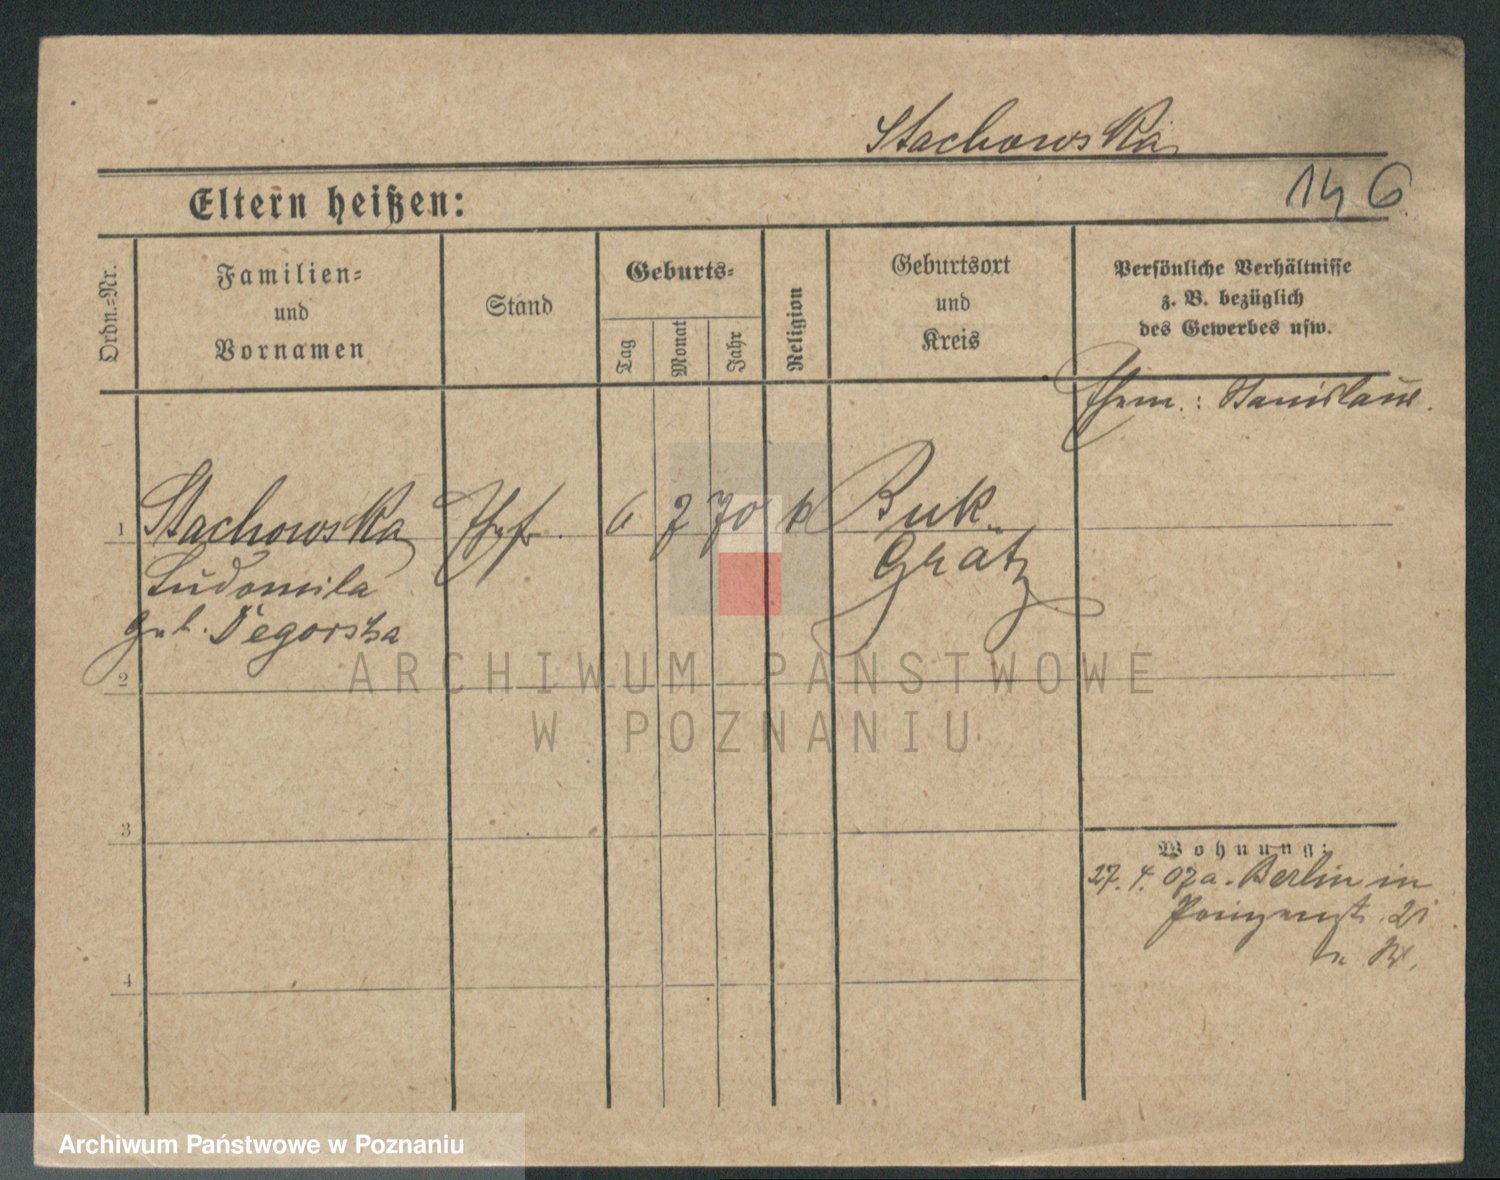 Stachowska
Eltern heißen:
146
Ordn.=Nr.
Familien=
und
Vornamen
Stand
Geburts=
Tag
Monat
Jahr
Religion
Geburtsort
und
Kreis
Persönliche Verhältnisse
z. B. bezüglich
des Gewerbes usw.
Ehem.: Stanislaus.
1
Stachowska
Ehefr.
6
7
70
k
Buk
Ludomila
Grätz
geb.
2
3
4
Wohnung:
27. 4. 07 a. Berlin in
21
ARCHIWUM PAŃSTWOWE
W POZNANIU
Archiwum Państwowe w Poznaniu